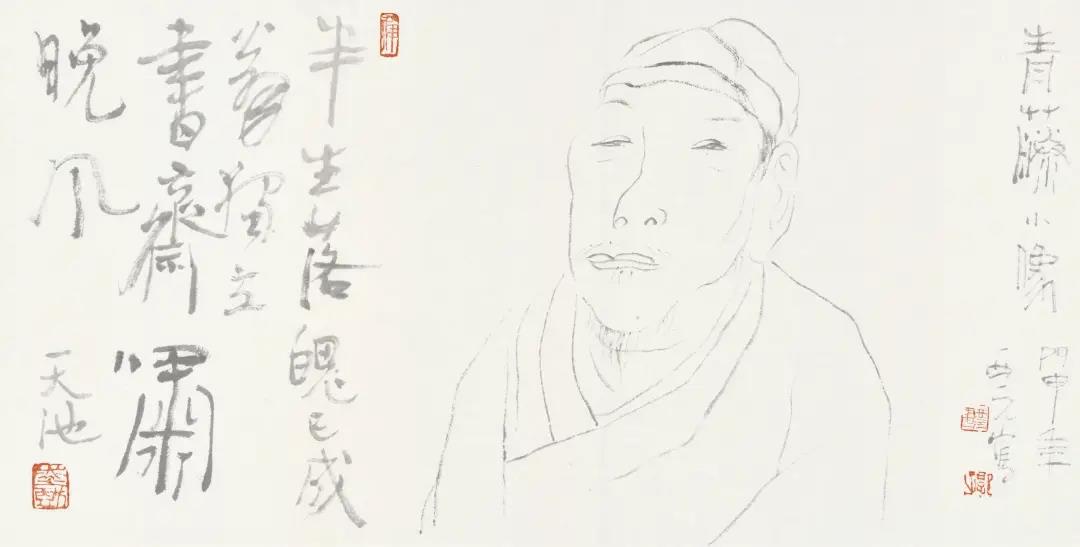 青藤小像
丙申年
西元寫
半生落魄已成
翁獨立
書齋嘯
晚风
天池